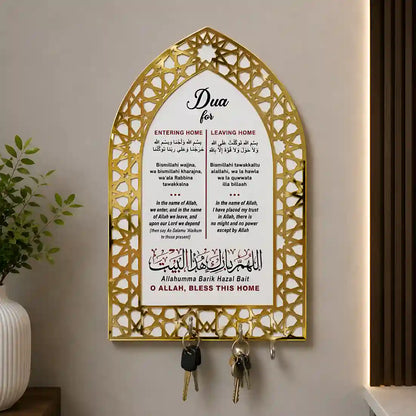 Dua
for
ENTERING HOME
بسم الله ولجنا وبسم الله
خرجنا وعلى ربنا توكلنا
Bismillahi wajna,
wa bismillahi kharajna,
wa'ala Rabbina
tawakkalna
In the name of Allah,
we enter, and in the name
of Allah we leave, and
upon our Lord we depend
[then say As-Salamu 'Alaikum
to those present]
LEAVING HOME
بسم الله توكلت على الله
ولا حول ولا قوة إلا بالله
Bismillahi tawakkaltu
alallahi, wa la hawla
wa la quwwata
illa billaah
In the name of Allah,
I have placed my trust
in Allah, there is
no might and no power
except by Allah
اللهم بارك هذا البيت
Allahumma Barik Hazal Bait
O ALLAH, BLESS THIS HOME